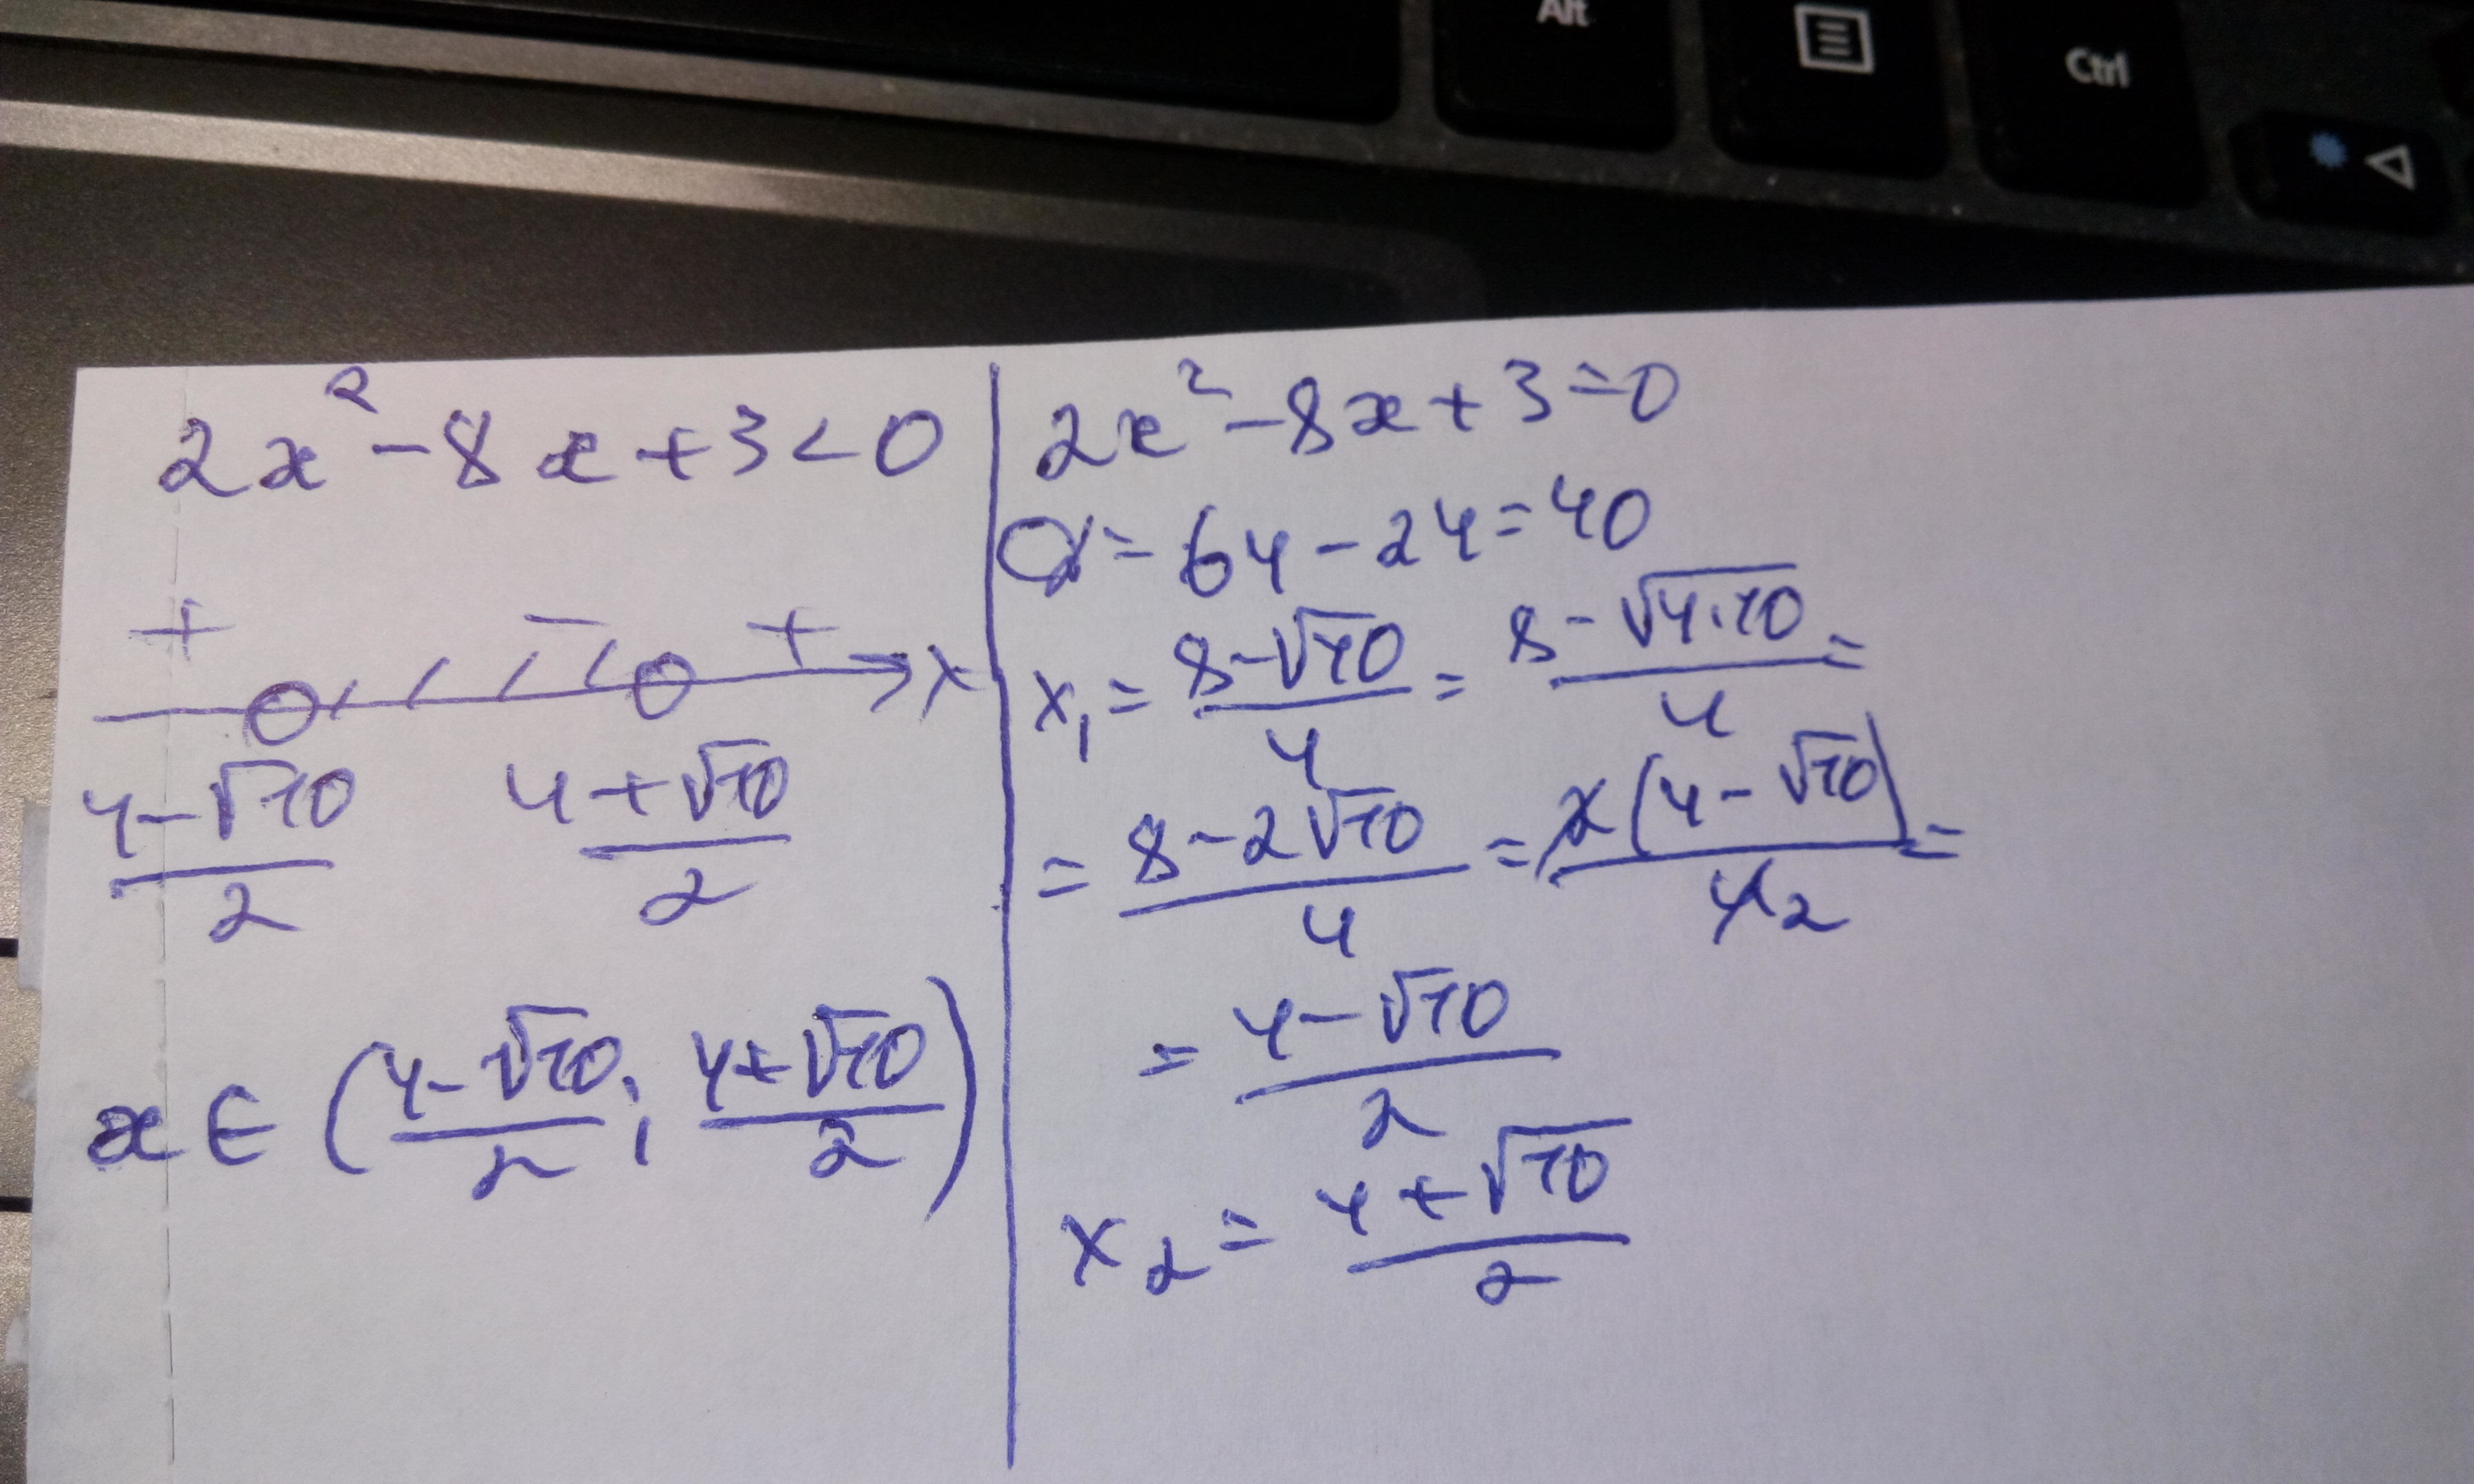 Alt
Ctrl
2x² - 8x + 3 < 0
+ - + x
4-√10/2 4+√10/2
x ∈ (4-√10/2; 4+√10/2)
2x² - 8x + 3 = 0
D = 64 - 24 = 40
x₁ = 8-√40/4 = 8-√4·10/4 =
= 8-2√10/4 = 2(4-√10)/4 2 =
= 4-√10/2
x₂ = 4+√10/2